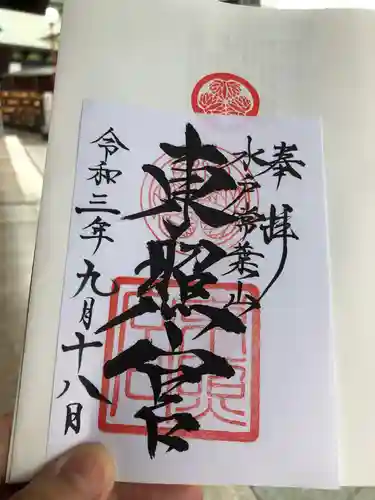 奉拝
水戸常葉山
東照宮
令和三年九月十八月